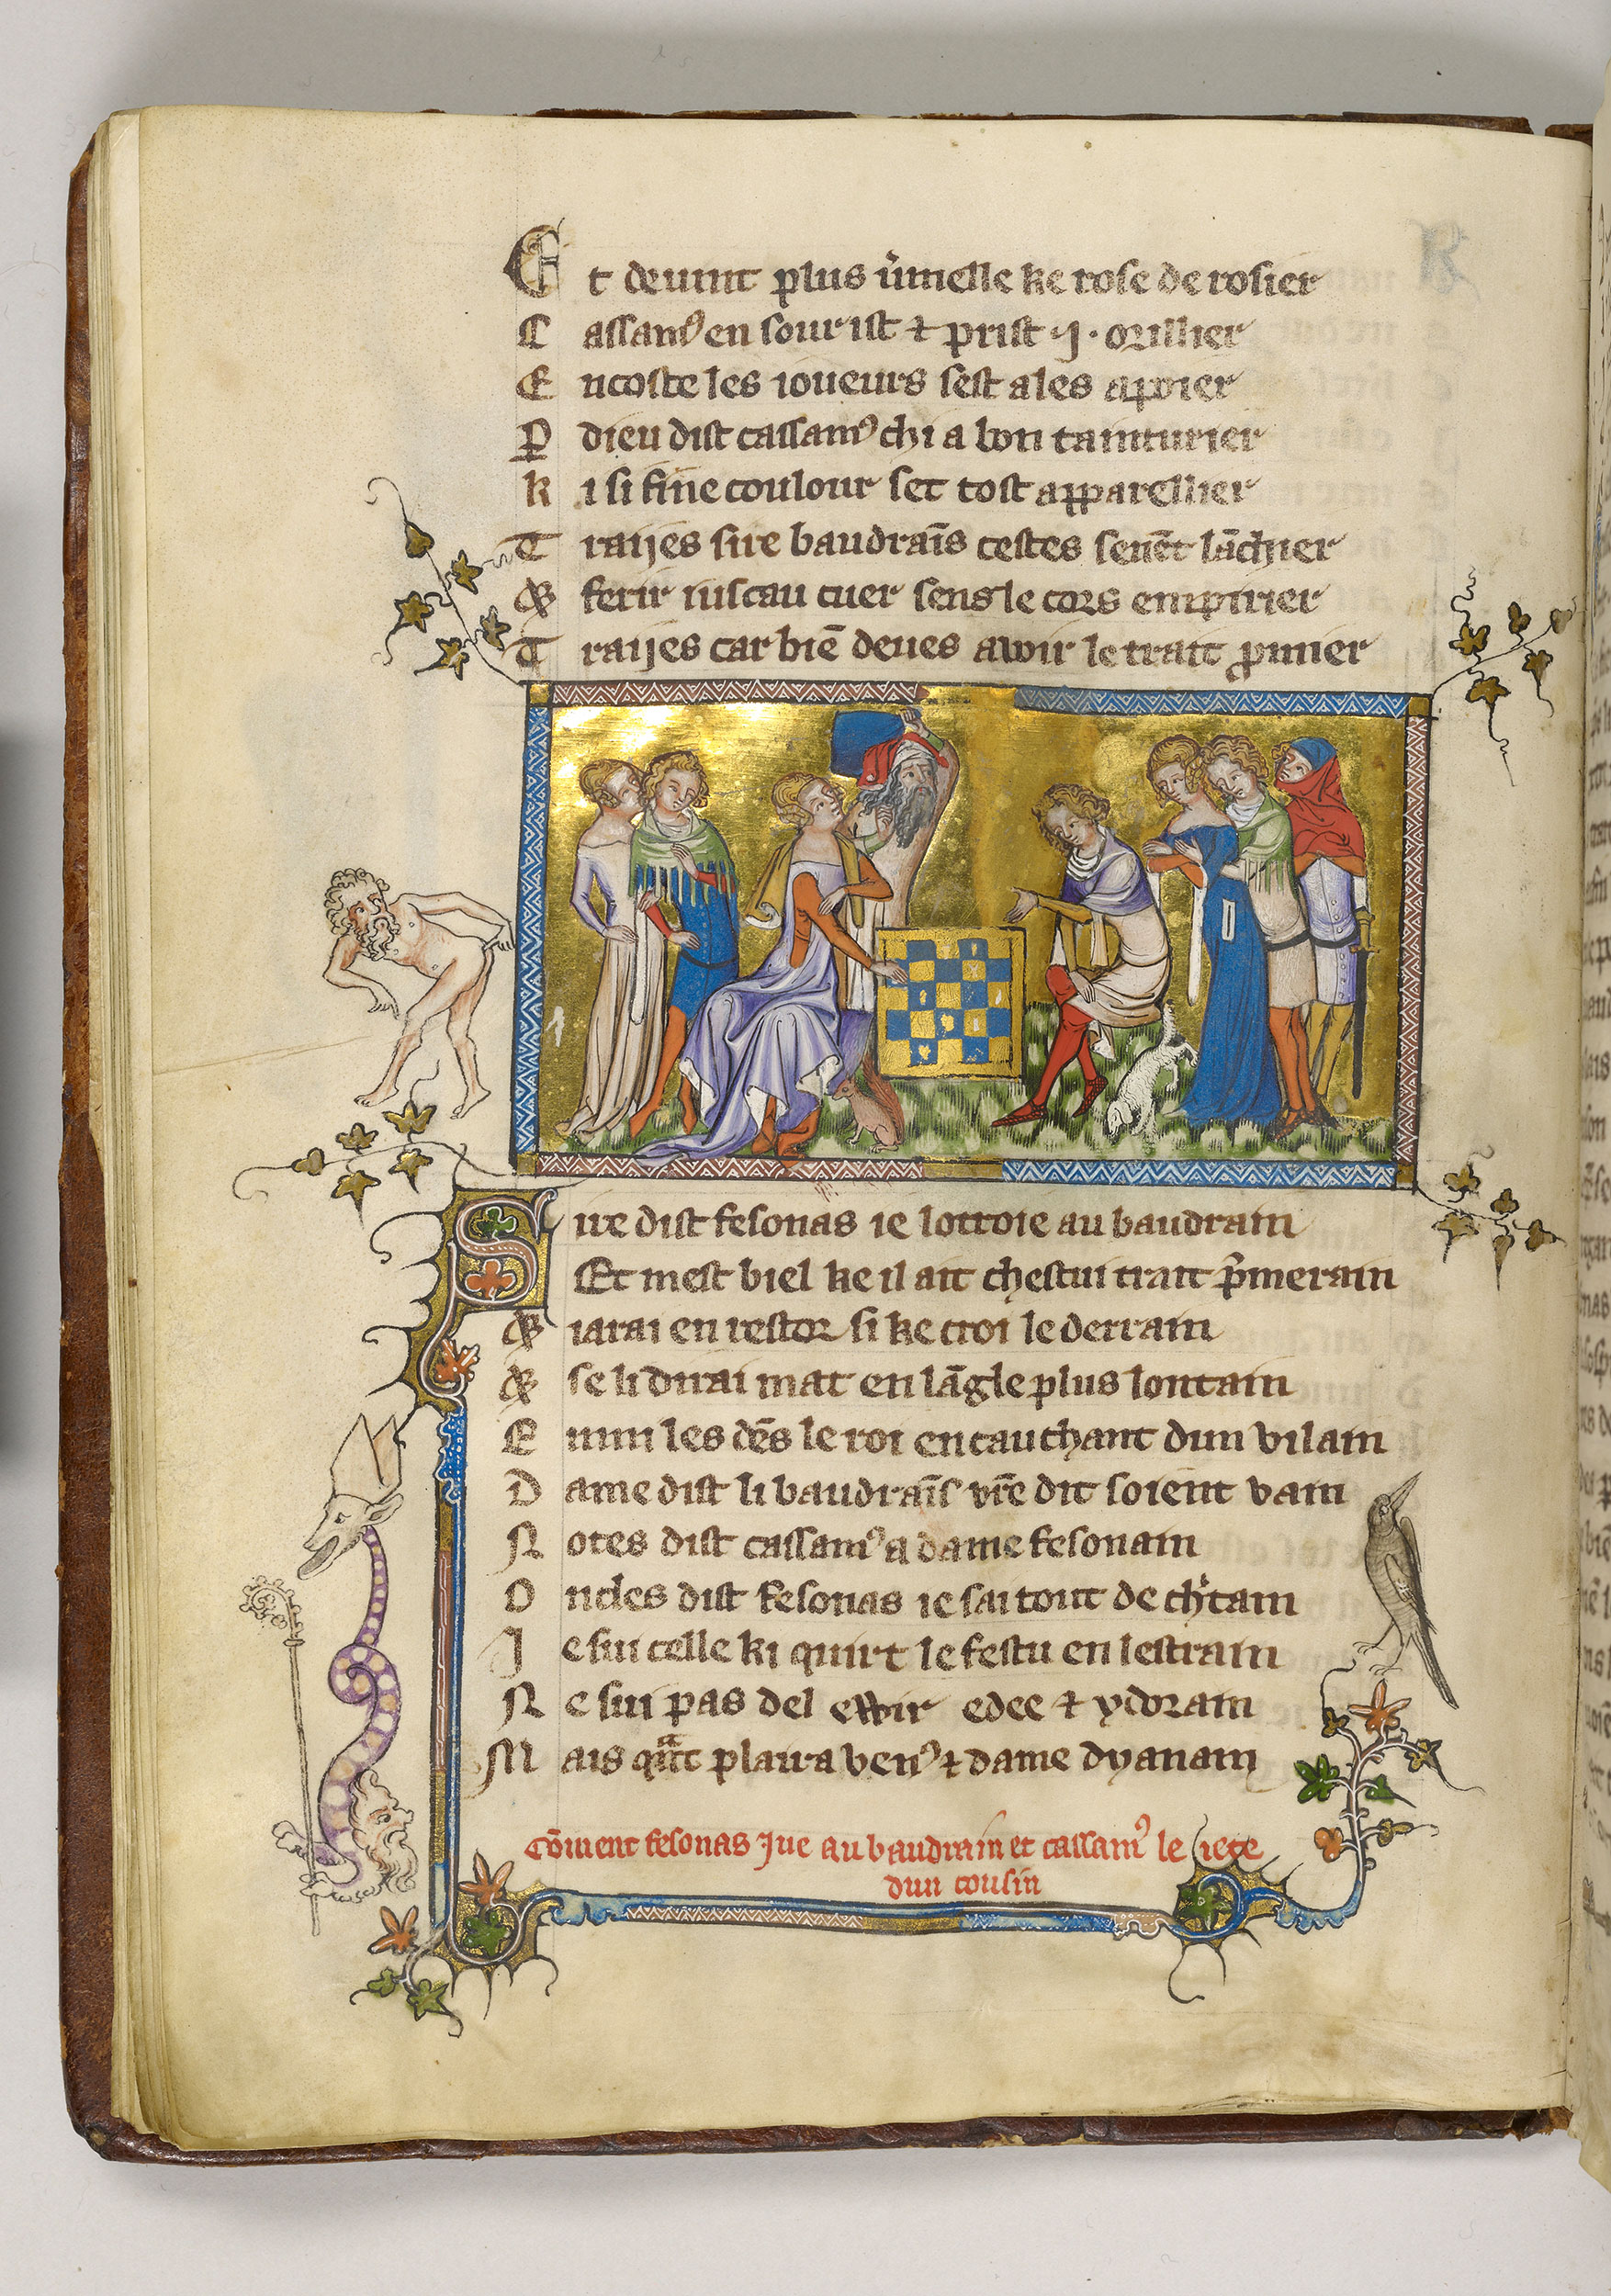 Et deuint plus v̾meille ke rose de rosier
Cassamꝰ en sourist ⁊ prist ·j· orillier
Encoste les ioueurs sest ales apoier
P dieu dist cassamꝰ chi a bon tainturier
Ki si fine coulour set tost apparellier
Traijes sire baudraīs cestes seuēt lāchier
⁊ ferir iuscau cuer sens le cors empirier
Traijes car biē deues auoir le trait pͥmier
Sire dist fesonas ie lottroie au baudrain
Et mest biel ke il ait chestui trait pͥmerain
⁊ iarai en restor si ke croi le derrain
⁊ se li dirai mat en lāgle plus lontain
Enmi les dēs le roi encauchant dun vilain
Dame dist li baudraīs vr̄e dit soient vain
Notes dist cassamꝰ a dame fesonain
Oncles dist fesonas ie sai tout de ch̾tain
Je sui celle ki quiert le festu en lestrain
Ne sui pas del espoir edee ⁊ ydorain
Mais qᵃt plaira venꝰ ⁊ dame dyanain
cōment fesonas Jue au baudrain et cassamꝰ le iete
dun cousin